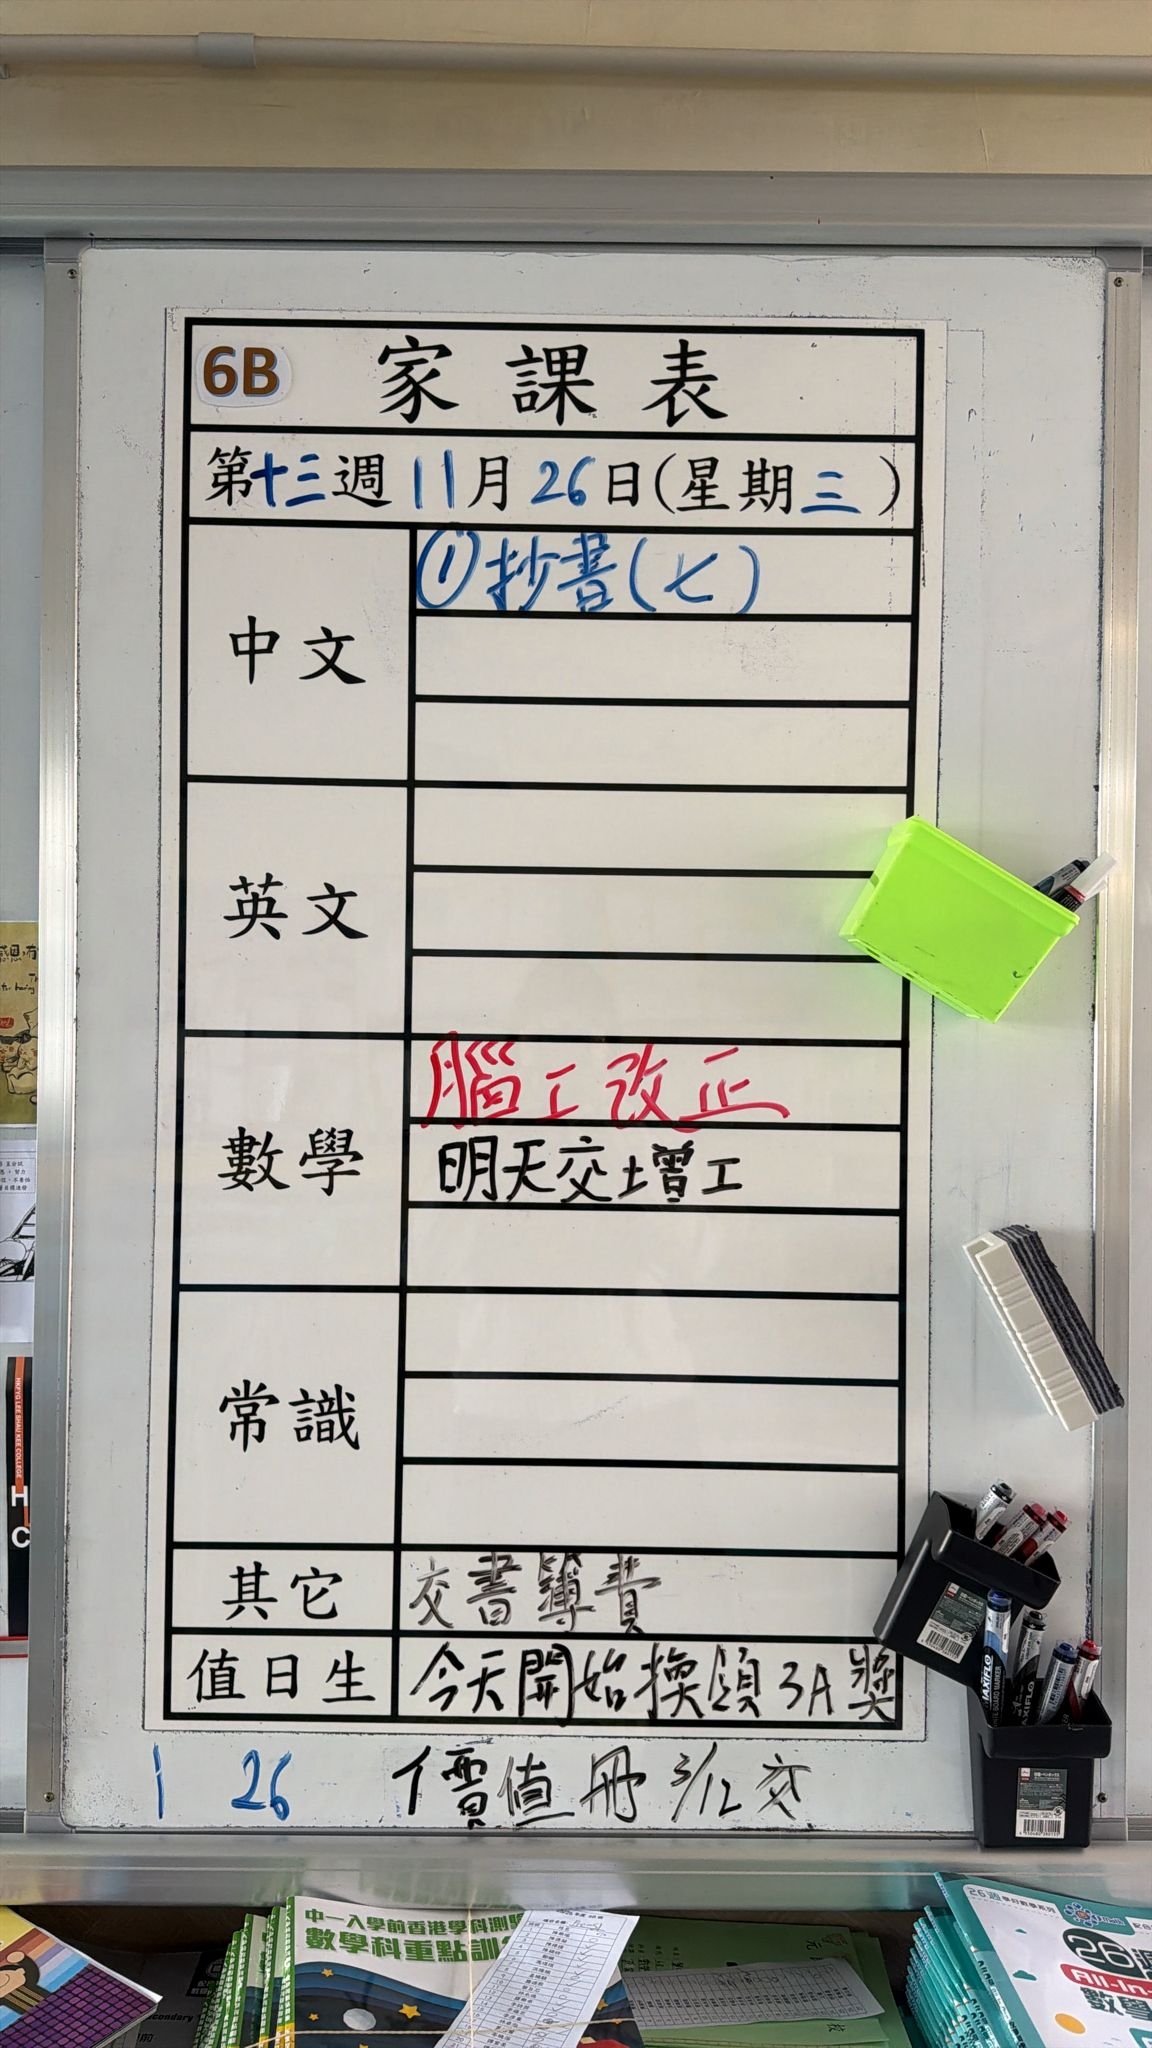 6B 家課表
第十三週 11月26日(星期三)
中文
①抄書(七)
英文
數學
腦工改正
明天交增工
常識
其它
交書簿費
值日生
今天開始換領3A獎
1 26 價值冊 3/12交
HKFYG LEE SHAU KEE COLLEGE
中一入學前香港學科測
數學科重點訓
26週
All-in-
數學